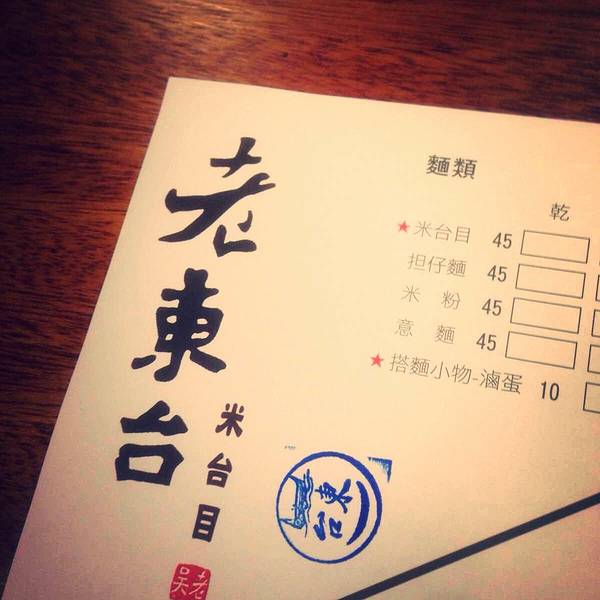 老東台
米台目
老吳
台東
麵類
乾
★米台目 45
担仔麵 45
米粉 45
意麵 45
★搭麵小物-滷蛋 10